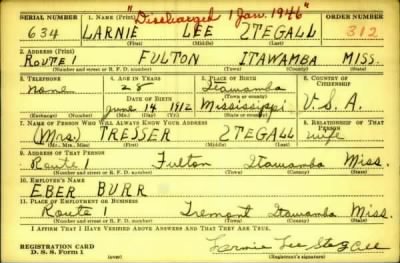 "Discharged 1 Jan. 1946"
SERIAL NUMBER 1. NAME (Print) ORDER NUMBER
634 LARNIE LEE STEGALL 312
(First) (Middle) (Last)
2. ADDRESS (Print)
ROUTE 1 FULTON ITAWAMBA MISS.
(Number and street or R. F. D. number) (Town) (County) (State)
3. TELEPHONE 4. AGE IN YEARS 5. PLACE OF BIRTH 6. COUNTRY OF CITIZENSHIP
None 28 Itawamba
DATE OF BIRTH (Town or county)
June 14 1912 Mississippi U.S.A.
(Exchange) (Number) (Mo.) (Day) (Yr.) (State or country)
7. NAME OF PERSON WHO WILL ALWAYS KNOW YOUR ADDRESS 8. RELATIONSHIP OF THAT PERSON
(Mrs.) TRESSER STEGALL wife
(Mr., Mrs., Miss) (First) (Middle) (Last)
9. ADDRESS OF THAT PERSON
Route 1 Fulton Itawamba Miss.
(Number and street or R. F. D. number) (Town) (County) (State)
10. EMPLOYER'S NAME
EBER BURR
11. PLACE OF EMPLOYMENT OR BUSINESS
Route 1 Tremont Itawamba Miss.
(Number and street or R. F. D. number) (Town) (County) (State)
I AFFIRM THAT I HAVE VERIFIED ABOVE ANSWERS AND THAT THEY ARE TRUE.
REGISTRATION CARD
D. S. S. Form 1 Larnie Lee Stegall
(over) (Registrant's signature)